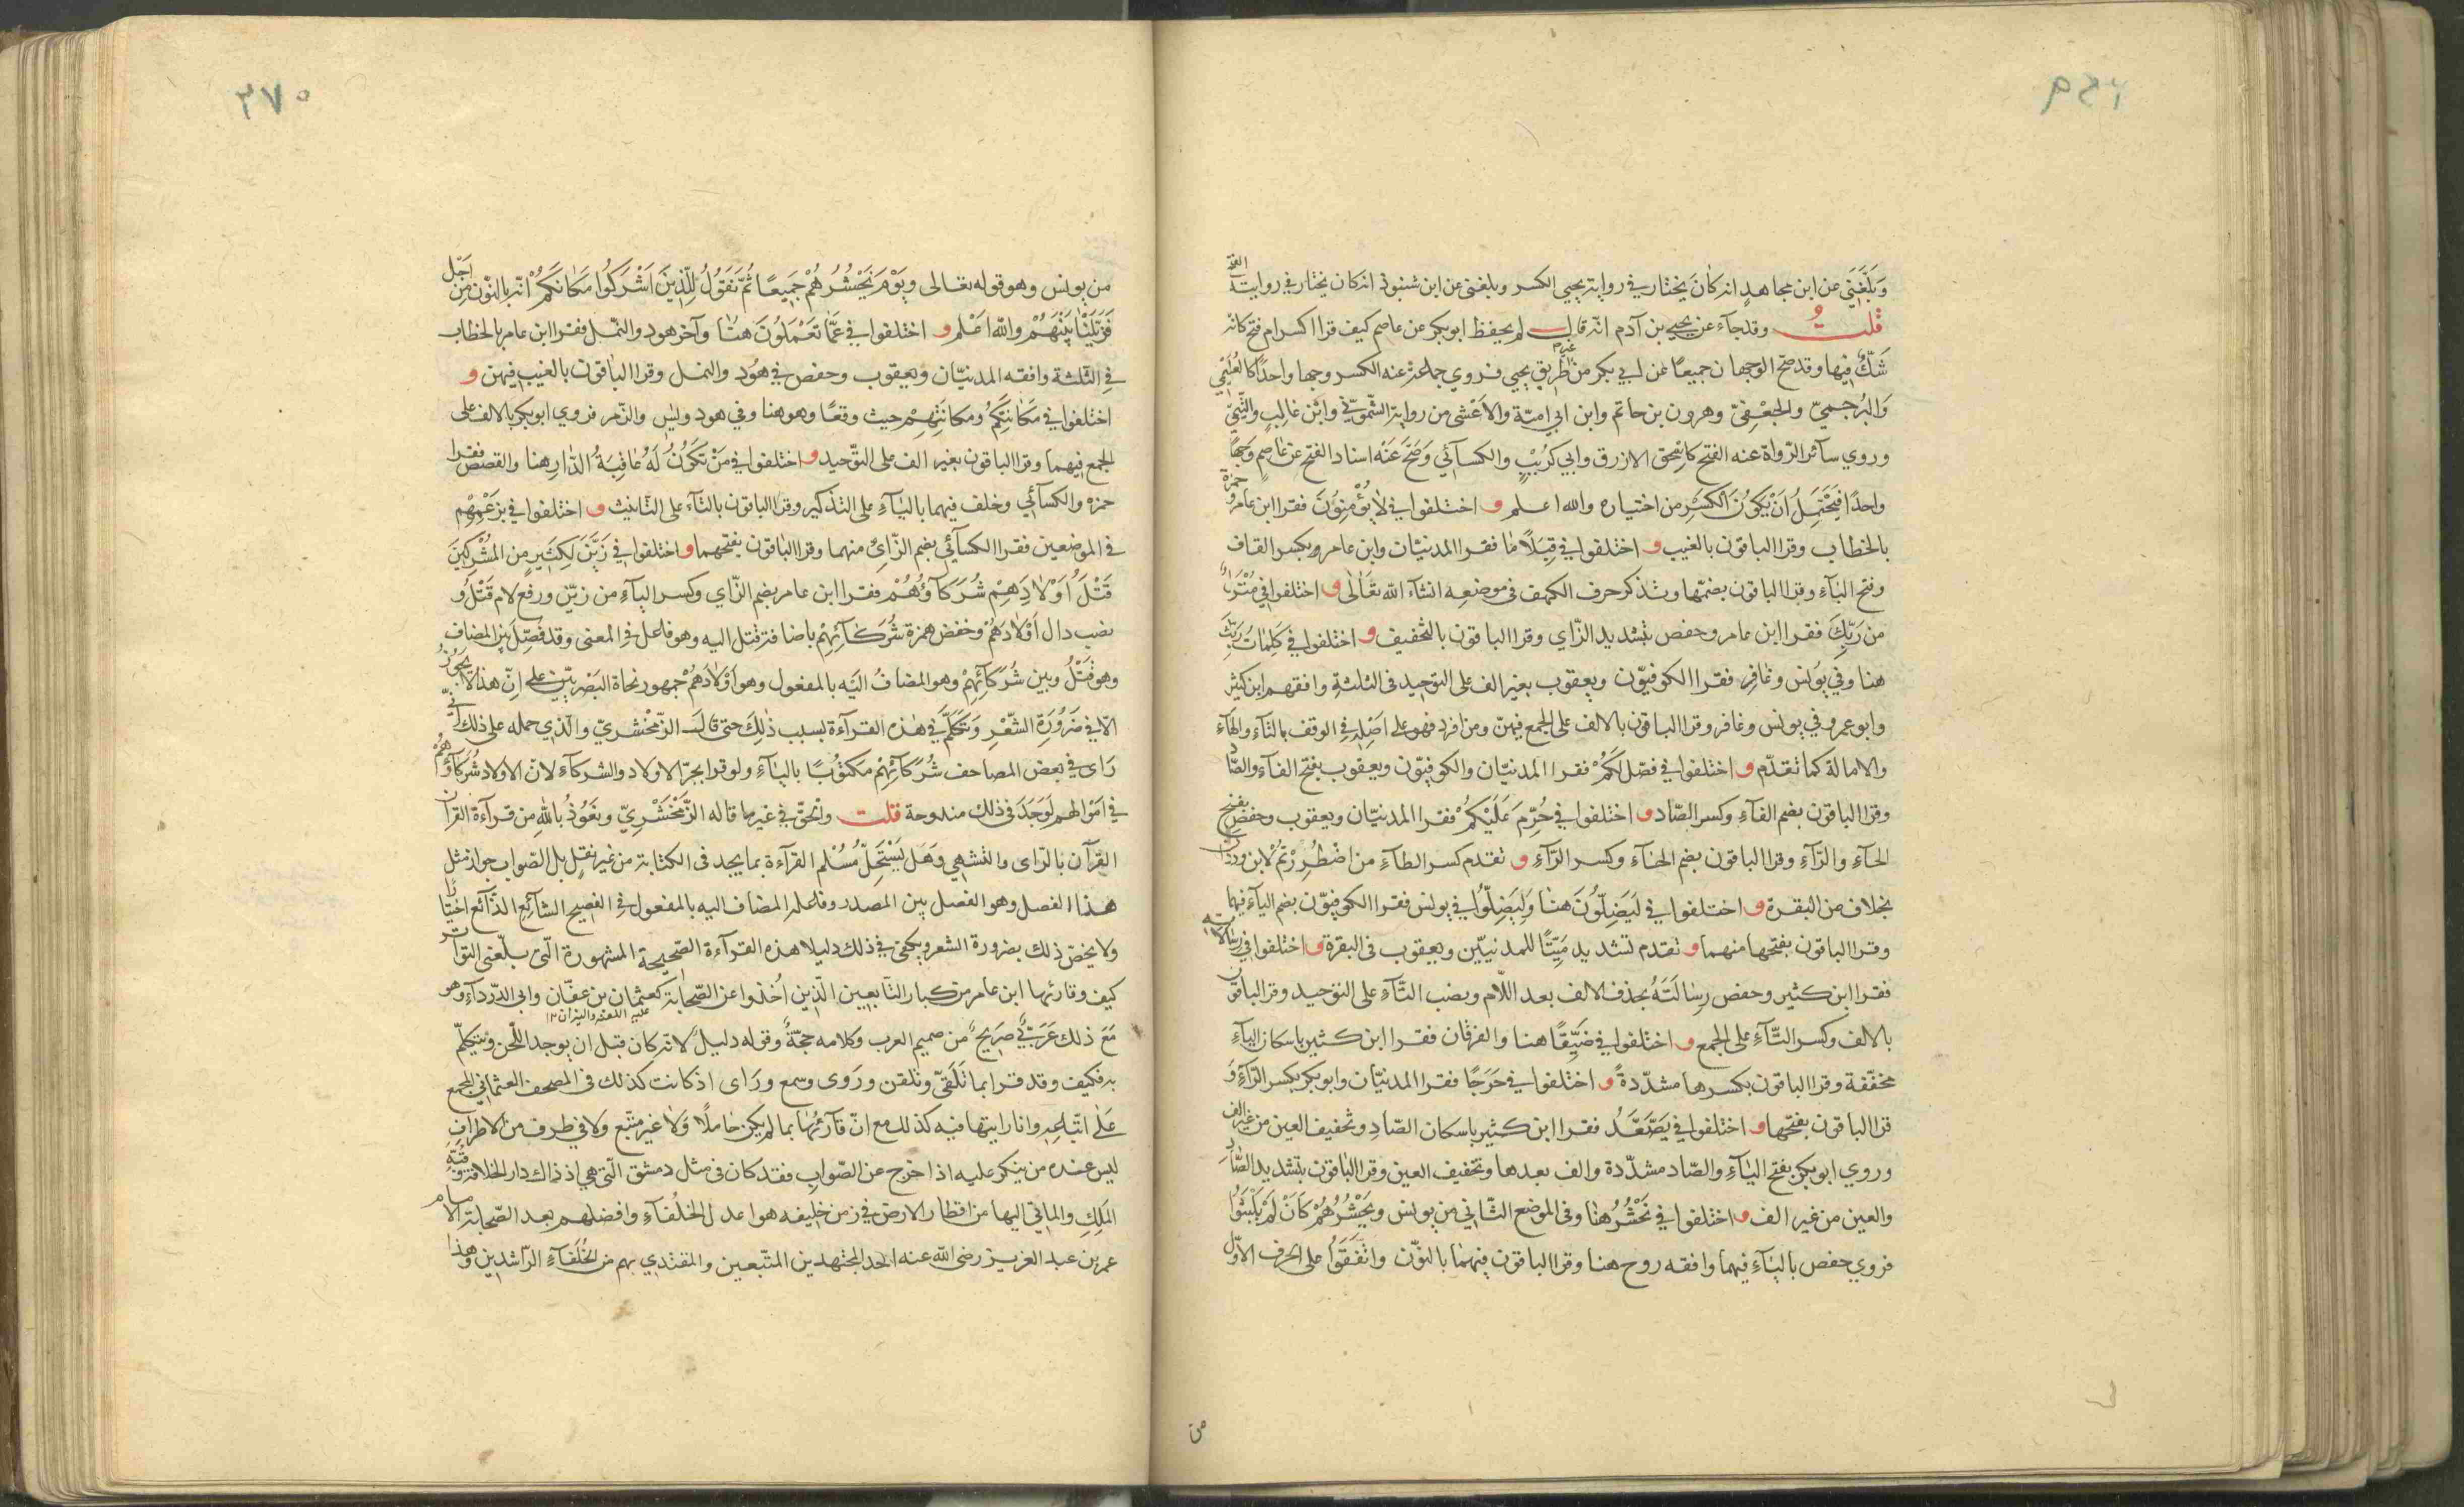 وَبَلَغَنِي عن ابن مجاهدٍ انه كانَ يختار في رواية يحيى الكسر وبلغنى عن ابن شنبوذ انه كان يختار في روايته الفتح
قلتُ وقد جآء عن يحيى بن آدم انّه قال لم يحفظ ابو بكر عن عاصم كيف قرا اكسر ام فتح كانّه
شَكَّ فيها وقد صحّ الوجهان جميعًا عن ابي بكر من غير طريق يحيى فروي جماعة عنه الكسر وجها واحدًا كالعُلَيْمي
وَالبُرجميّ والجعْفِيّ وهرون بن حاتم وابن ابي اميّة والاَعْشى من رواية الشّمونيّ وابْن غالبٍ والتَّيْميّ
وروي سآئر الرّواة عنه الفتح كاسْحٰق الازرق وابي كرَيْبٍ والكسآئي وَصَحَّ عَنْه اسناد الفتح عن عاصمٍ وَجهًا
واحدًا فيَحْتَمِلُ اَنْ يَكوُنَ الْكَسْرِ من اختياره والله اعلم و اختلفوا في لاٰ يُؤْمِنوُنَ فقرا ابن عامر وَحمزة
بالخطاب وقرا الباقون بالغيب و اختلفوا في قِبَلاً مٰا فقرا المدنيّان وابن عامر وبكسر القاف
وفتح البَآءِ وقرا الباقون بضمّها ونذكر حرف الكهف في موضعه انشآء الله تعَالٰى و اختلفوا في مُنْزَلٌ
من رَبِّكَ فقرا ابن عامر وحفص بتشديد الزّاي وقرا الباقون بالتّخفيف و اختلفوا في كَلِمٰاتُ رَبِّكَ
هنا وفي يوُنس وغٰافِر فقرا الكوفيّون ويعقوب بغير الف على التوحيد في الثلثة وافقهم ابن كثير
وابو عمرو في يونس وغافر وقرا الباقون بالالف على الجمع فيهنّ ومن افرد فهو على اَصْلِه في الوقف بالتّاءِ والهآءِ
والامالة كما تقدّم و اختلفوا في فصّل لَكُمْ فقرا المدنيّان والكوفيّون ويعقوب بفتح الفآءِ والصّاد
وقرا الباقون بضم الفآءِ وكسر الصّاد و اختلفوا في حُرِّمَ عَلَيْكمُ فقرا المدنيّان ويعقوب وحفص بفتح
الحآءِ والرّآءِ وقرا الباقون بضم الحآءِ وكسر الرّآءِ و تقدم كسر الطآءِ من اضْطُرِرْتُمْ لابن وردان
بخلاف من البقرة و اختلفوا في لَيَضِلّوُنَ هنا وَلِيَضِلّوُا في يونس فقرا الكوفيّون بضم اليآءِ فيهما
وقرا الباقون بفتحها منهما و تقدم تشديد مَيّتًا للمدنيّين ويعقوب في البقرة و اختلفوا في رسٰالاته
فقرا ابن كثير وحفص رِسٰالَتَهُ بحذف الالف بعد اللّام ونصب التّآءِ على التوحيد وقرا الباقون
بالالف وكسر التّآءِ على الجمع و اختلفوا في ضَيِّقًا هنا والفرقان فقرا ابن كثير باسكان اليآءِ
مخفّفة وقرا الباقون بكسرها مشدّدةً و اختلفوا في حَرَجًا فقرا المدنيّان وابو بكر بكسر الرّآءِ وَ
قرا الباقون بفتحها و اختلفوا في يَصَّعَّدُ فقرا ابن كثير باسكان الصّادِ وتخفيف العين من غير الف
وروي ابو بكر بفتح اليٰآءِ والصّاد مشدّدة والف بعدها وتخفيف العين وقرا البٰاقون بتشديد الصَّادَ
والعين من غير الف و اختلفوا في نَحْشُرُ هنٰا وفي الموضع الثّاني من يونس ويَحْشُرُهُمْ كَأَنْ لَمْ يَلْبَثوُا
فروي حفص باليٰآءِ فيهما وافقه روح هنا وقرا الباقون فيهمٰا بالنوّن واتّفَقوُا على الحرف الاوّل
من يونس وهو قوله تعالى وَيَوْمَ نَحْشُرُهُمْ جَمِيعًا ثُمَّ نَقوُلُ لِلَّذِينَ اَشْرَكوُا مَكانَكُمْ انّه بالنّون من اَجْل
فَزَيَّلْنٰا بَيْنَهُمْ والله اعَلم و اختلفوا في عَمّٰا تَعْمَلوُنَ هنٰا وآخر هود والنّمل فقرا ابن عامر بالخطاب
في الثّلثة وافقه المدنيّان ويعقوب وحفص في هوُد والنمل وقرا البٰاقون بالغيب فيهن و
اختلفوا في مَكٰانَتِكمُ ومكانَتِهِمْ حيث وقعًا وهو هنا وفي هود ويٰس والزّمر فروي ابو بكر بالالف على
الجمع فيهما وقرا الباقون بغير الف على التوّحيد و اختلفوا في مَنْ تَكوُنُ لَهُ عٰاقِبَةُ الدّٰارِ هنا والقصص فقرا
حمزه والكسآئي وخلف فيهما باليٰآءِ على التذكير وقرا الباقون بالتّآء على التّانيث و اختلفوا في بزَعْمِهِمْ
في الموضعين فقرا الكسآئي بضم الزّاي منهما وقرا البٰاقون بفتحهما و اختلفوا في زَيَّنَ لِكَثيرٍ من المُشْرِكينَ
قَتْلَ أَوْلاٰدِهِمْ شُرَكَآؤُهُمْ فقرا ابن عامر بضم الزّاي وكسر اليآءِ من زيّن ورفع لام قَتْلُ وُ
نصب دال اَوْلاٰدَهُمْ وخفض همزة شُرَكَآئِهِمْ باضافة قتل اليه وهو فاعل في المعنى وقد فَصّلَ بين المضاف
وهو قَتْلُ وبين شُرَكَآئِهِمْ وهو المضافُ اليَه بالمفعول وهو اَوْلادَهُمْ جمهور نحاة البَصْريّين على انّ هذا لاٰ يَجوُزُ
الّا في ضَروُرَةِ الشّعْرِ وَتكَلَّم في هٰذه القرآءة بسبب ذٰلِكَ حتى قالَ الزّمخْشريّ والّذي حمله على ذلك انّه
رَاى في بعض المصاحف شُرَكآئِهِمْ مكتوُبًا باليٰآءِ ولو قرا بجرّ الاولاد والشركآءِ لانّ الاولاد شُرَكآؤهُمْ
في اَمْوالهم لَوَجَدَ في ذلك مندوحة قلت والحق في غير ما قاله الزَّمخْشَريّ ونَعوُذُ بالله من قرآءة القران
القرآن بالرّاى والتّشهي وَهَل يَسْتَحِلّ مُسْلم القرآءة بما يجد في الكتابة من غير نَقلٍ بل الصّواب جواز مثل
هذا الفصل وهو الفصل بين المصدر وفاعله المضاف اليه بالمفعول في الفصيح الشآئِع الذّآئع اختيارًا
ولا يختصّ ذلك بضرورة الشعر ويكفى في ذلك دليلا هذه القرآءة الصّحيحة المشهورة الّتى بلغت التوّاتر
كيف وقارئها ابن عامر من كبار التّابعين الّذين اُخذوا عن الصّحابة كعثمان بن عفّان وابي الدّردآءِ وهو
مَعَ ذلك عَرَبيٌّ صَريحٌ من صميم العرب وكلامه حجّةٌ وقوله دليلٌ لانّه كان قبل ان يوجد اللّحن ويُتكلّم
به فكيف وقد قرا بما تَلقّى وتلقن ورَوى وسمع ورَاى اذ كانت كذلك في المصحف العثماني المجمع
عَلٰى اتّباعِه وانا رايتها فيه كذلك مع انّ قآرئهٰا بما لم يكن خٰاملًا وَلاٰ غير متّبع وَلا في طرف من الاطرافِ
ليس عنده من ينكر عليه اذا خرج عن الصّواب فقد كان في مثل دمشق الّتى هي اذ ذاك دار الخلافة وَفيه
المَلِكِ والماتى اليها من اقطار الارض في زمن خليفه هو اعدل الخلُفآءِ وافضلهم بعد الصّحابة الامام
عمر بن عبد العزيز رضي الله عنه احد المجتهدين المتّبعين والمقتدي بهم من الخُلَفآءِ الرّاشدين وهذا
٣٧٠